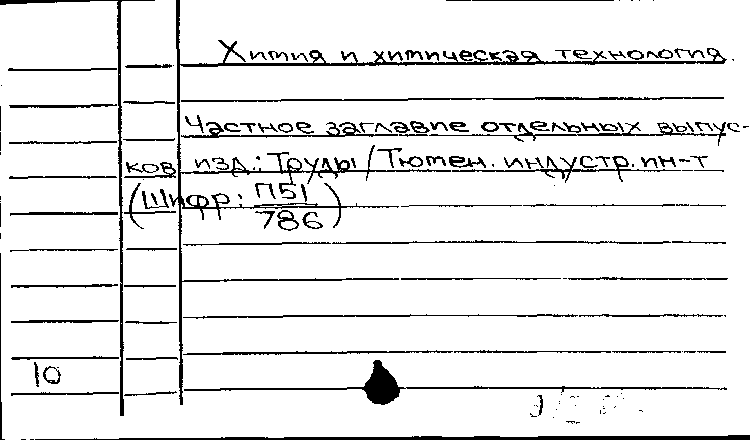 Химия и химическая технология.
Частное заглавие отдельных выпус-
ков изд.: Труды / Тюмен. индустр. ин-т
(Шифр: П51
786)
10